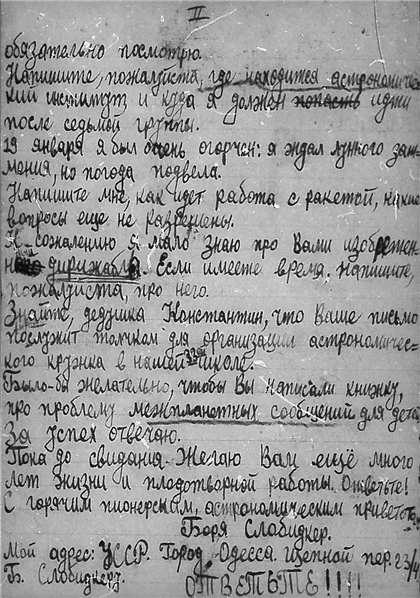 II
обязательно посмотрю.
Напишите, пожалуйста, где находится астрономичес-
кий институт и куда я должен попасть идти
после седьмой группы.
19 января я был очень огорчен: я ждал лунного зат-
мения, но погода подвела.
Напишите мне, как идет работа с ракетой, какие
вопросы еще не разрешены.
К сожалению я мало знаю про Вами изобретен
дирижабль. Если имеете время. Напишите,
пожалуйста, про него.
Знайте, дедушка Константин, что Ваше письмо
послужит толчком для организации астрономичес-
кого кружка в нашей школе.
Было-бы желательно, чтобы Вы написали книжку,
про проблему межпланетных сообщений для детей
За успех отвечаю.
Пока до свидания. Желаю Вам ещё много
лет жизни и плодотворной работы. Ответьте!
С горячим пионерским, астрономическим приветом
Боря Слободкер.
Мой адрес: УССР. Город Одесса. Щепной пер. 23/4
Б. Слободкеру.
ОТВЕТЬТЕ!!!!